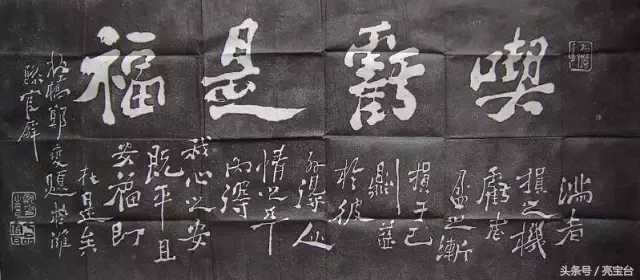 喫虧是福
滿者
損之機
虧者
盈之漸
損于己
則益
於彼
外得人
情之平
內得
我心之安
既平且
安福即
在是矣
板橋鄭燮題於濰
縣官廨
头条号／亮宝台